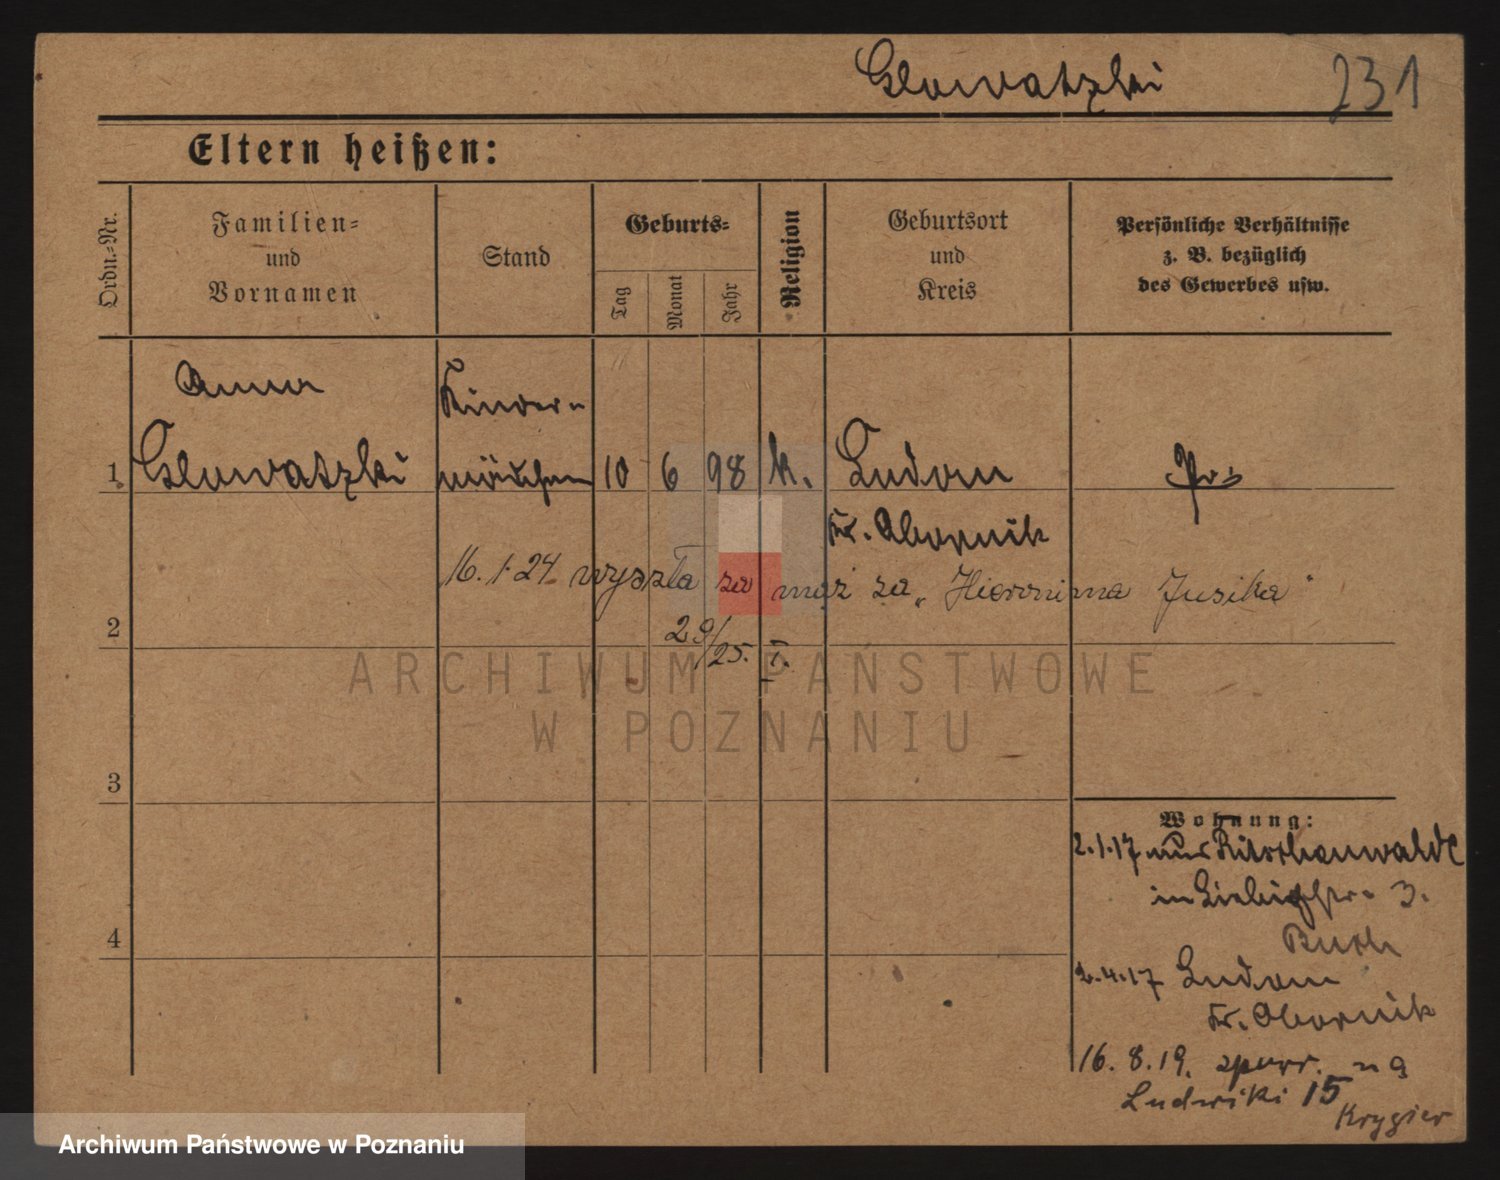 Glowatzki 231
Eltern heißen:
Ordn.-Nr.
Familien-
und
Vornamen
Stand
Geburts-
Tag
Monat
Jahr
Religion
Geburtsort
und
Kreis
Persönliche Verhältnisse
z. B. bezüglich
des Gewerbes usw.
Anna Kinder-
1 Glowatzki mädchen 10 6 98 k. Ludom Pr.
Kr. Obornik
16. 1. 24. wyszła za mąż za „Hieronima Jusika"
2
29/25. I.
ARCHIWUM PAŃSTWOWE
W POZNANIU
3
Wohnung:
2.1.17 aus Ritschenwalde
in Liebigstr. 3.
4
Buth
2.4.17 Ludom
Kr. Obornik
16. 8. 19. z
Ludwiki 15
Krygier
Archiwum Państwowe w Poznaniu